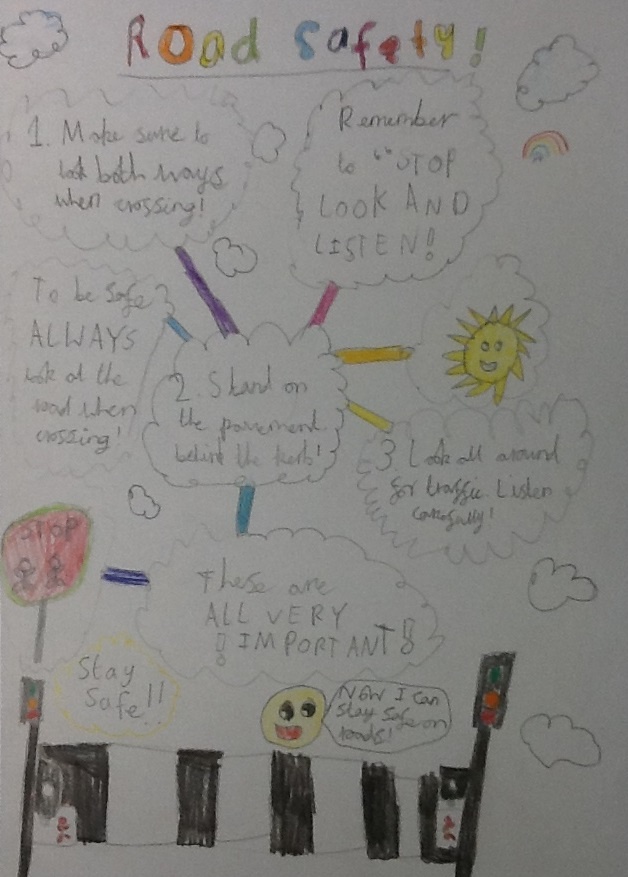 Road Safety!
1. Make sure to
look both ways
when crossing!
Remember
to "STOP
LOOK AND
LISTEN!
To be safe
ALWAYS
look at the
road when
crossing!
2. Stand on
the pavement
behind the kerb!
3 Look all around
for traffic. Listen
carefully!
STOP
These are
ALL VERY
! IMPORTANT!
Stay
Safe!!
Now I can
stay safe on
roads!